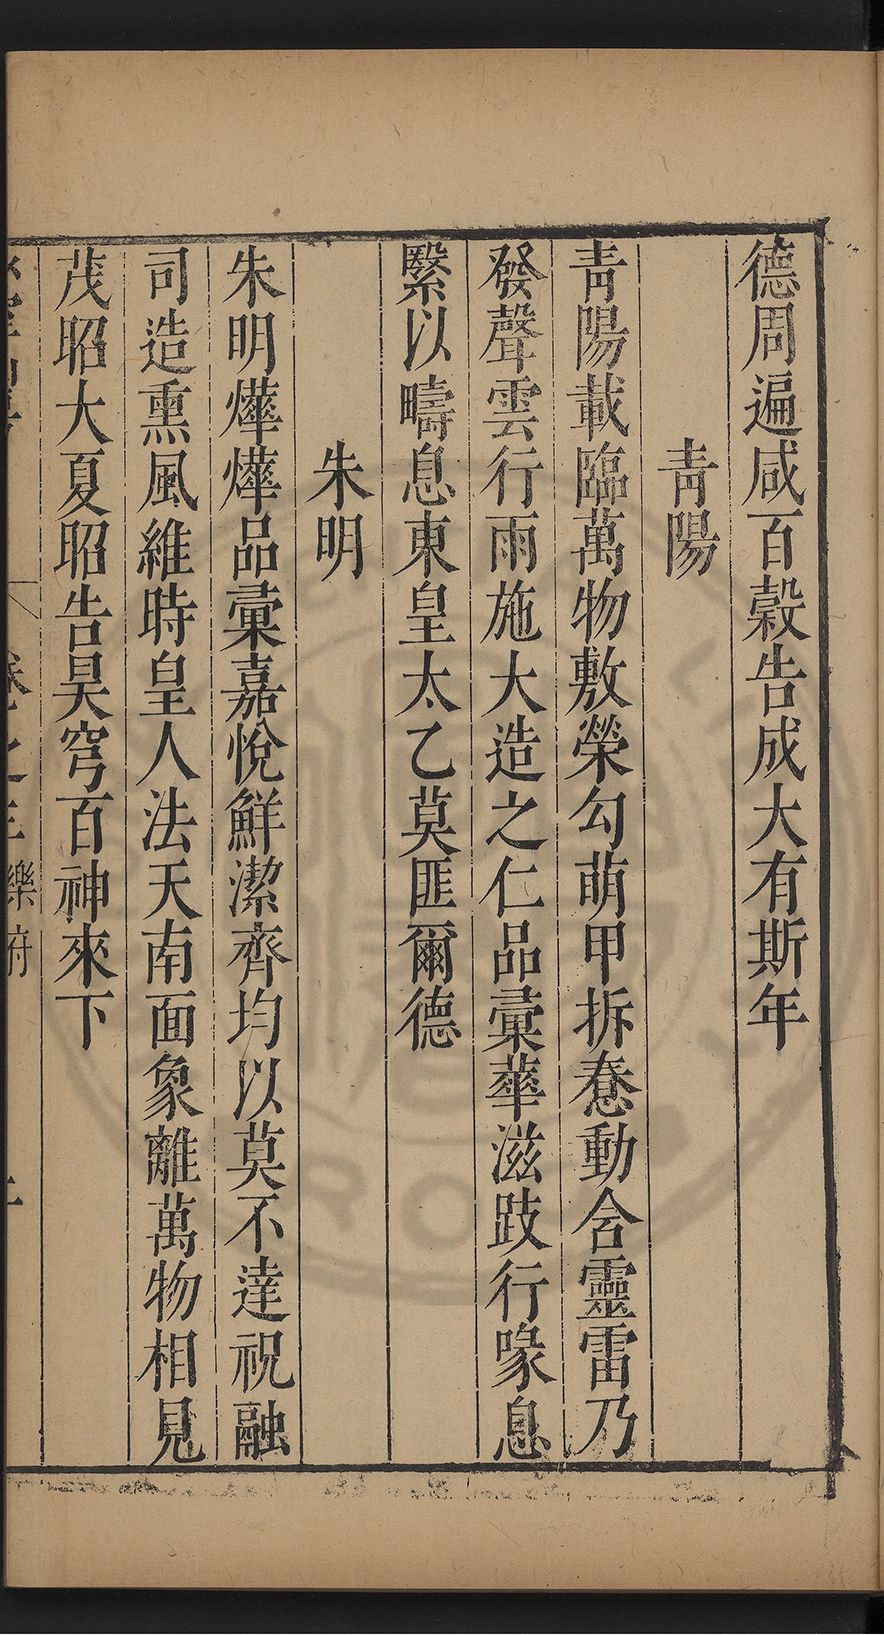 德周遍咸百穀告成大有斯年
青陽
青陽載臨萬物敷榮勾萌甲拆惷動含靈雷乃
發聲雲行雨施大造之仁品彙華滋跂行喙息
繄以疇息東皇太乙莫匪爾德
朱明
朱明燁燁品彙嘉悅鮮潔齊均以莫不達祝融
司造熏風維時皇人法天南面象離萬物相見
茂昭大夏昭告昊穹百神來下
卷之三 樂府